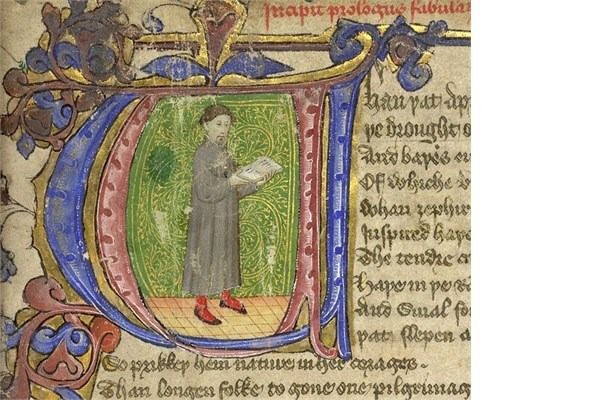 Incipit prologus fabular
Whan þat apr
þe drought o
And baþes eu
Of whiche v
Whan zephir
Inspired haþe
The tendre cr
haþe in þe ra
And smal fo
þat slepen a
So prikkeþ hem nature in her corages.
Than longen folke to gone one pilgrimag